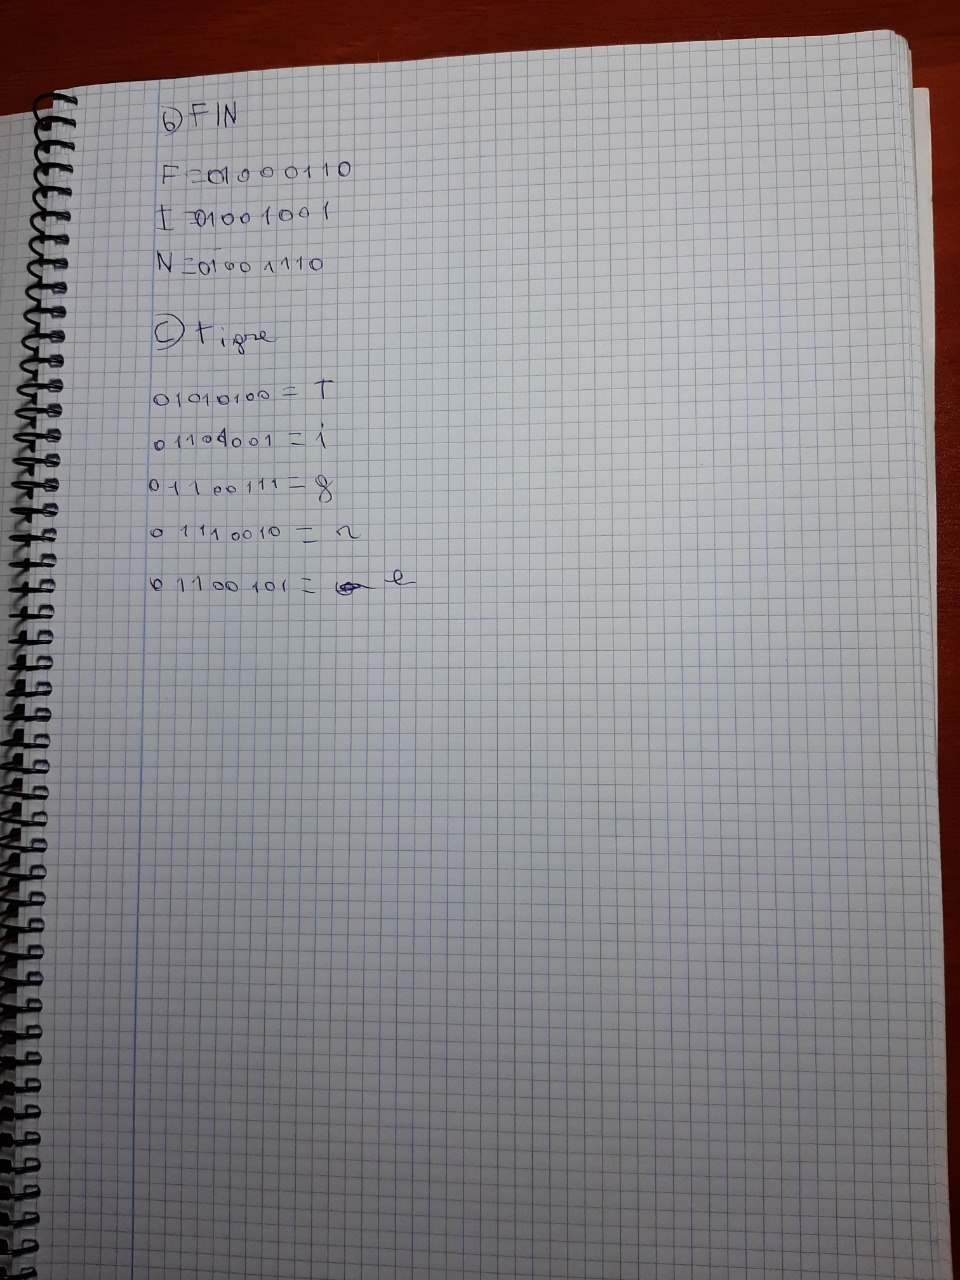 b) FIN
F = 01000110
I = 01001001
N = 01001110
c) Tigre
01010100 = T
01101001 = i
01100111 = g
01110010 = r
01100101 = e